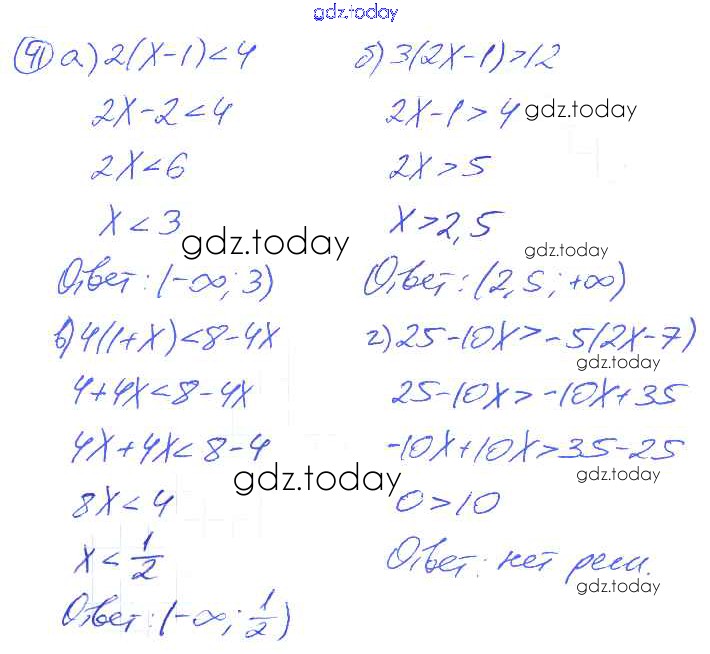 gdz.today
41 а) 2(x-1)<4
2x-2<4
2x<6
x<3
gdz.today
Ответ: (-∞; 3)
б) 3(2x-1)>12
2x-1>4 gdz.today
2x>5
x>2,5
gdz.today
Ответ: (2,5; +∞)
в) 4(1+x)<8-4x
4+4x<8-4x
4x+4x<8-4
gdz.today
8x<4
x<1/2
Ответ: (-∞; 1/2)
г) 25-10x>-5(2x-7)
gdz.today
25-10x>-10x+35
-10x+10x>35-25
gdz.today
0>10
Ответ: нет реш.
gdz.today